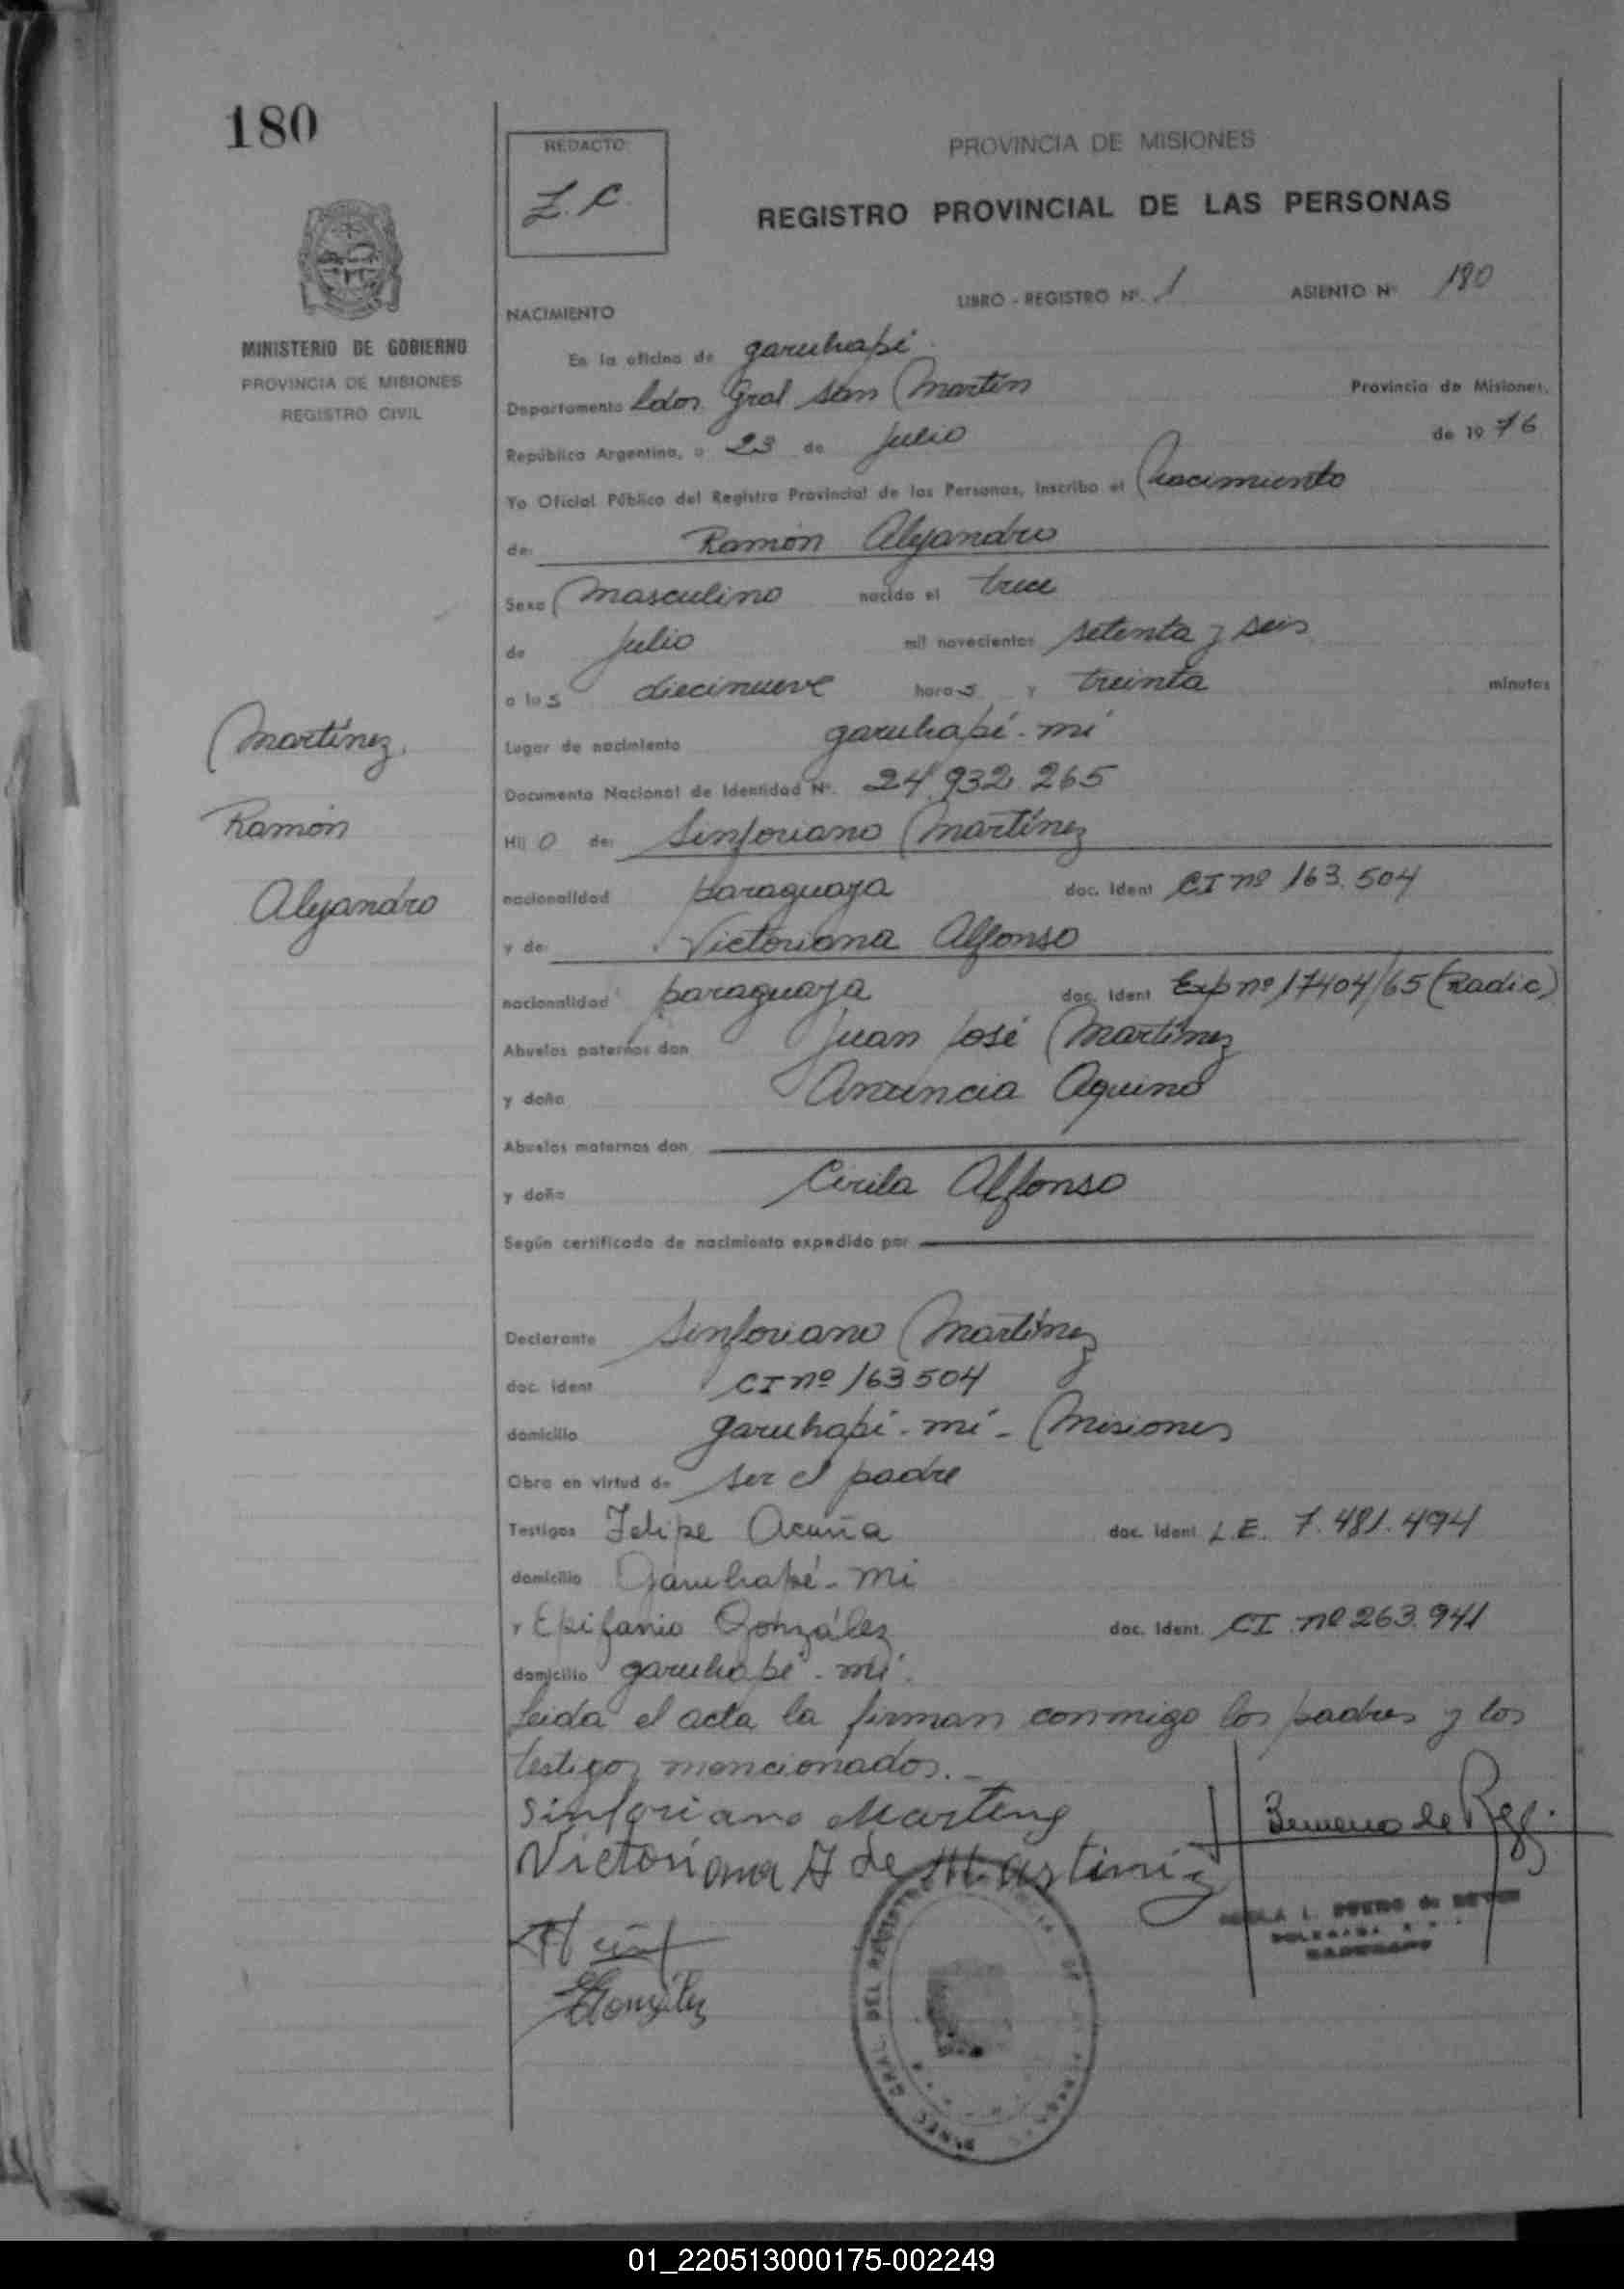 180
REDACTO
Z. C.
PROVINCIA DE MISIONES
REGISTRO PROVINCIAL DE LAS PERSONAS
MINISTERIO DE GOBIERNO
PROVINCIA DE MISIONES
REGISTRO CIVIL
LIBRO - REGISTRO Nº. 1 ASIENTO Nº 180
NACIMIENTO
En la oficina de garuhapé
Departamento Ldor. Gral San Martín Provincia de Misiones,
República Argentina, a 23 de Julio de 19 76
Yo Oficial Público del Registro Provincial de las Personas, inscribo el Nacimiento
de: Ramón Alejandro
Sexo Masculino nacido el trece
de Julio mil novecientos setenta y seis
a las diecinueve horas y treinta minutos
Lugar de nacimiento garuhapé - mí
Documento Nacional de Identidad Nº. 24.932.265
Martínez,
Ramón
Alejandro
Hijo de: Sinforiano Martínez
nacionalidad paraguaya doc. ident CI nº 163.504
y de: Victoriana Alfonso
nacionalidad paraguaya doc. ident Exp nº 17404/65 (Radic)
Abuelos paternos don Juan José Martínez
y doña Anuncia Aquino
Abuelos maternos don
y doña Cirila Alfonso
Según certificado de nacimiento expedido por
Declarante Sinforiano Martínez
doc. ident CI nº 163504
domicilio garuhapé - mí - Misiones
Obra en virtud de ser el padre
Testigos Felipe Acuña doc. ident L.E. 7.481.494
domicilio Garuhapé - mí
y Epifanio González doc. ident. CI nº 263.941
domicilio garuhapé - mí
Leida el acta la firman conmigo los padres y los
testigos mencionados. -
Sinforiano Martinez
Victoriana A de Martiniz
González
DEL REGISTRO
GARUHAPE
01_220513000175-002249